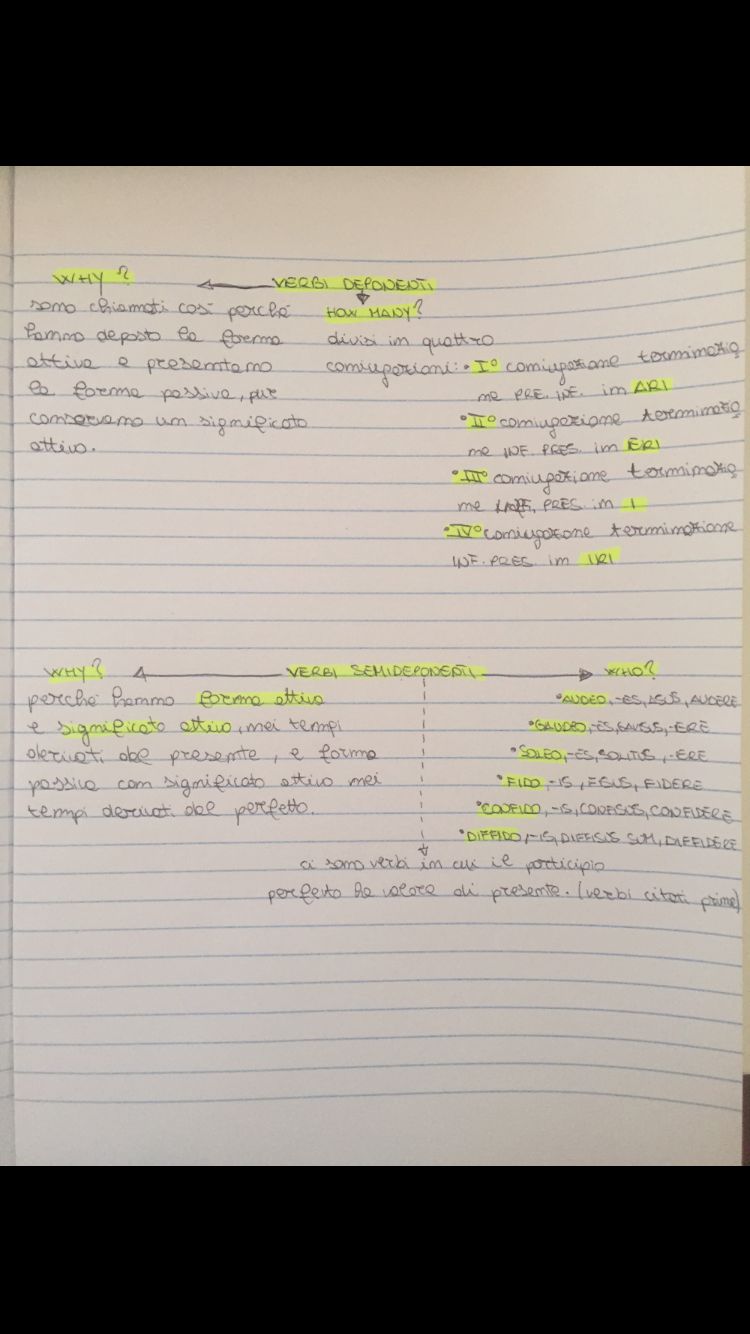 WHY? VERBI DEPONENTI
sono chiamati così perché
hanno deposto la forma
attiva e presentano
la forma passiva, pur
conservano un significato
attivo.
HOW MANY?
divisi in quattro
coniugazioni: • I° coniugazione terminazio
ne PRE. INF. in ARI
• II° coniugazione terminazio
ne INF. PRES. in ERI
• III° coniugazione terminazio
ne INF. PRES. in I
• IV° coniugazone terminazione
INF. PRES. in IRI
WHY? VERBI SEMIDEPONENTI WHO?
perché hanno forma attiva
e significato attivo, nei tempi
derivati dal presente, e forma
passiva con significato attivo nei
tempi derivati dal perfetto.
• AUDEO, -ES, ASUS, AUDERE
• GAUDEO, -ES, GAVISUS, -ERE
• SOLEO, -ES, SOLITUS, -ERE
• FIDO, -IS, FISUS, FIDERE
• CONFIDO, -IS, CONFISUS, CONFIDERE
• DIFFIDO, -IS, DIFFISUS SUM, DIFFIDERE
ci sono verbi in cui il participio
perfetto ha valore di presente. (verbi citati prima)